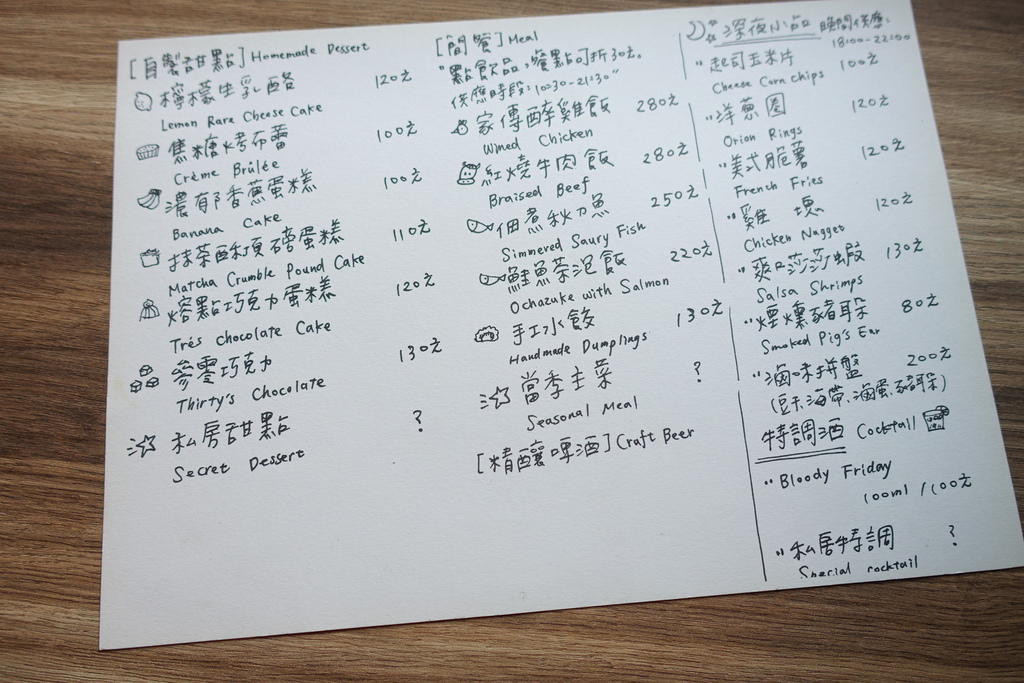 [自製甜點] Homemade Dessert
檸檬生乳酪 120元
Lemon Rare Cheese Cake
焦糖烤布蕾 100元
Crème Brûlée
濃郁香蕉蛋糕 100元
Banana Cake
抹茶酥頂磅蛋糕 110元
Matcha Crumble Pound Cake
熔點巧克力蛋糕 120元
Trés chocolate Cake
參零巧克力 130元
Thirty's Chocolate
私房甜點 ?
Secret Dessert
[簡餐] Meal
"點飲品,餐點可折30元。
供應時段:10:30-21:30"
家傳醉雞飯 280元
Wined Chicken
紅燒牛肉飯 280元
Braised Beef
佃煮秋刀魚 250元
Simmered Saury Fish
鮭魚茶泡飯 220元
Ochazuke with Salmon
手工水餃 130元
Handmade Dumplings
當季主菜 ?
Seasonal Meal
[精釀啤酒] Craft Beer
深夜小品 晚間供應:
18:00-22:00
起司玉米片 100元
Cheese Corn chips
洋蔥圈 120元
Orion Rings
美式脆薯 120元
French Fries
雞塊 120元
Chicken Nugget
爽口莎莎蝦 130元
Salsa Shrimps
煙燻豬耳朵 80元
Smoked Pig's Ear
滷味拼盤 200元
(豆干、海帶、滷蛋、豬耳朵)
特調酒 Cocktail
Bloody Friday
100ml /100元
私房特調 ?
Special cocktail